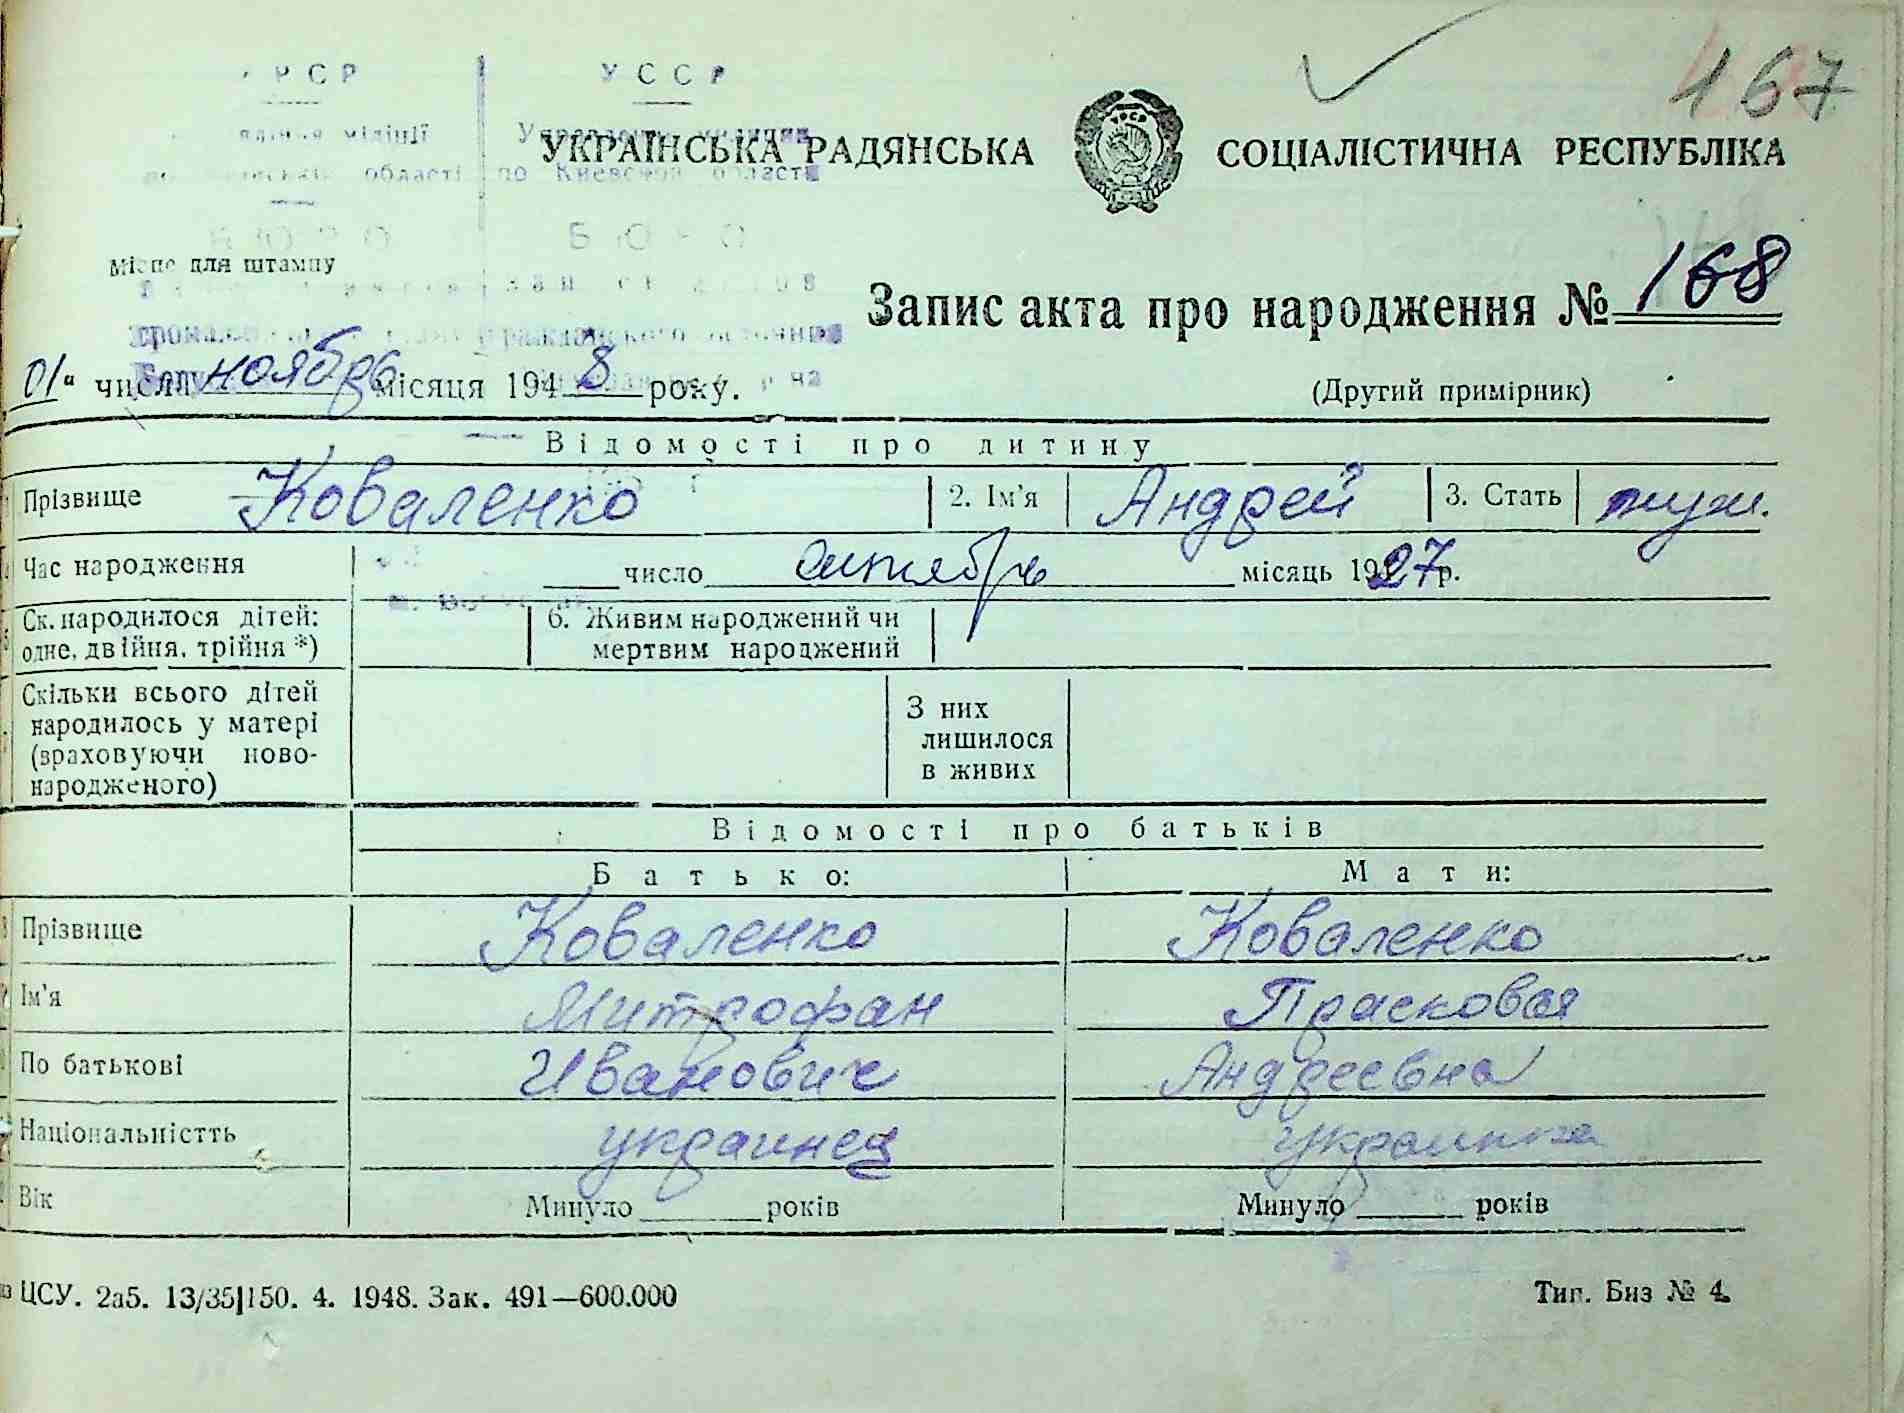 167
УССР
Управление милиции
області
по Киевской области
УКРАЇНСЬКА РАДЯНСЬКА СОЦІАЛІСТИЧНА РЕСПУБЛІКА
БЮРО БЮРО
Місце для штампу
Запис акта про народження № 168
01" числа ноябрь місяця 1948 року.
(Другий примірник)
Відомості про дитину
Прізвище Коваленко 2. Ім'я Андрей 3. Стать муж.
Час народження число октябрь місяць 1927 р.
Ск. народилося дітей: одне, двійня, трійня *)
6. Живим народжений чи мертвим народжений
Скільки всього дітей народилось у матері (враховуючи ново-народженого)
З них лишилося в живих
Відомості про батьків
Батько: Мати:
Прізвище Коваленко Коваленко
Ім'я Митрофан Прасковья
По батькові Иванович Андреевна
Національністть украинец украинка
Вік Минуло років Минуло років
ЦСУ. 2а5. 13/35|150. 4. 1948. Зак. 491—600.000
Тип. Биз № 4.